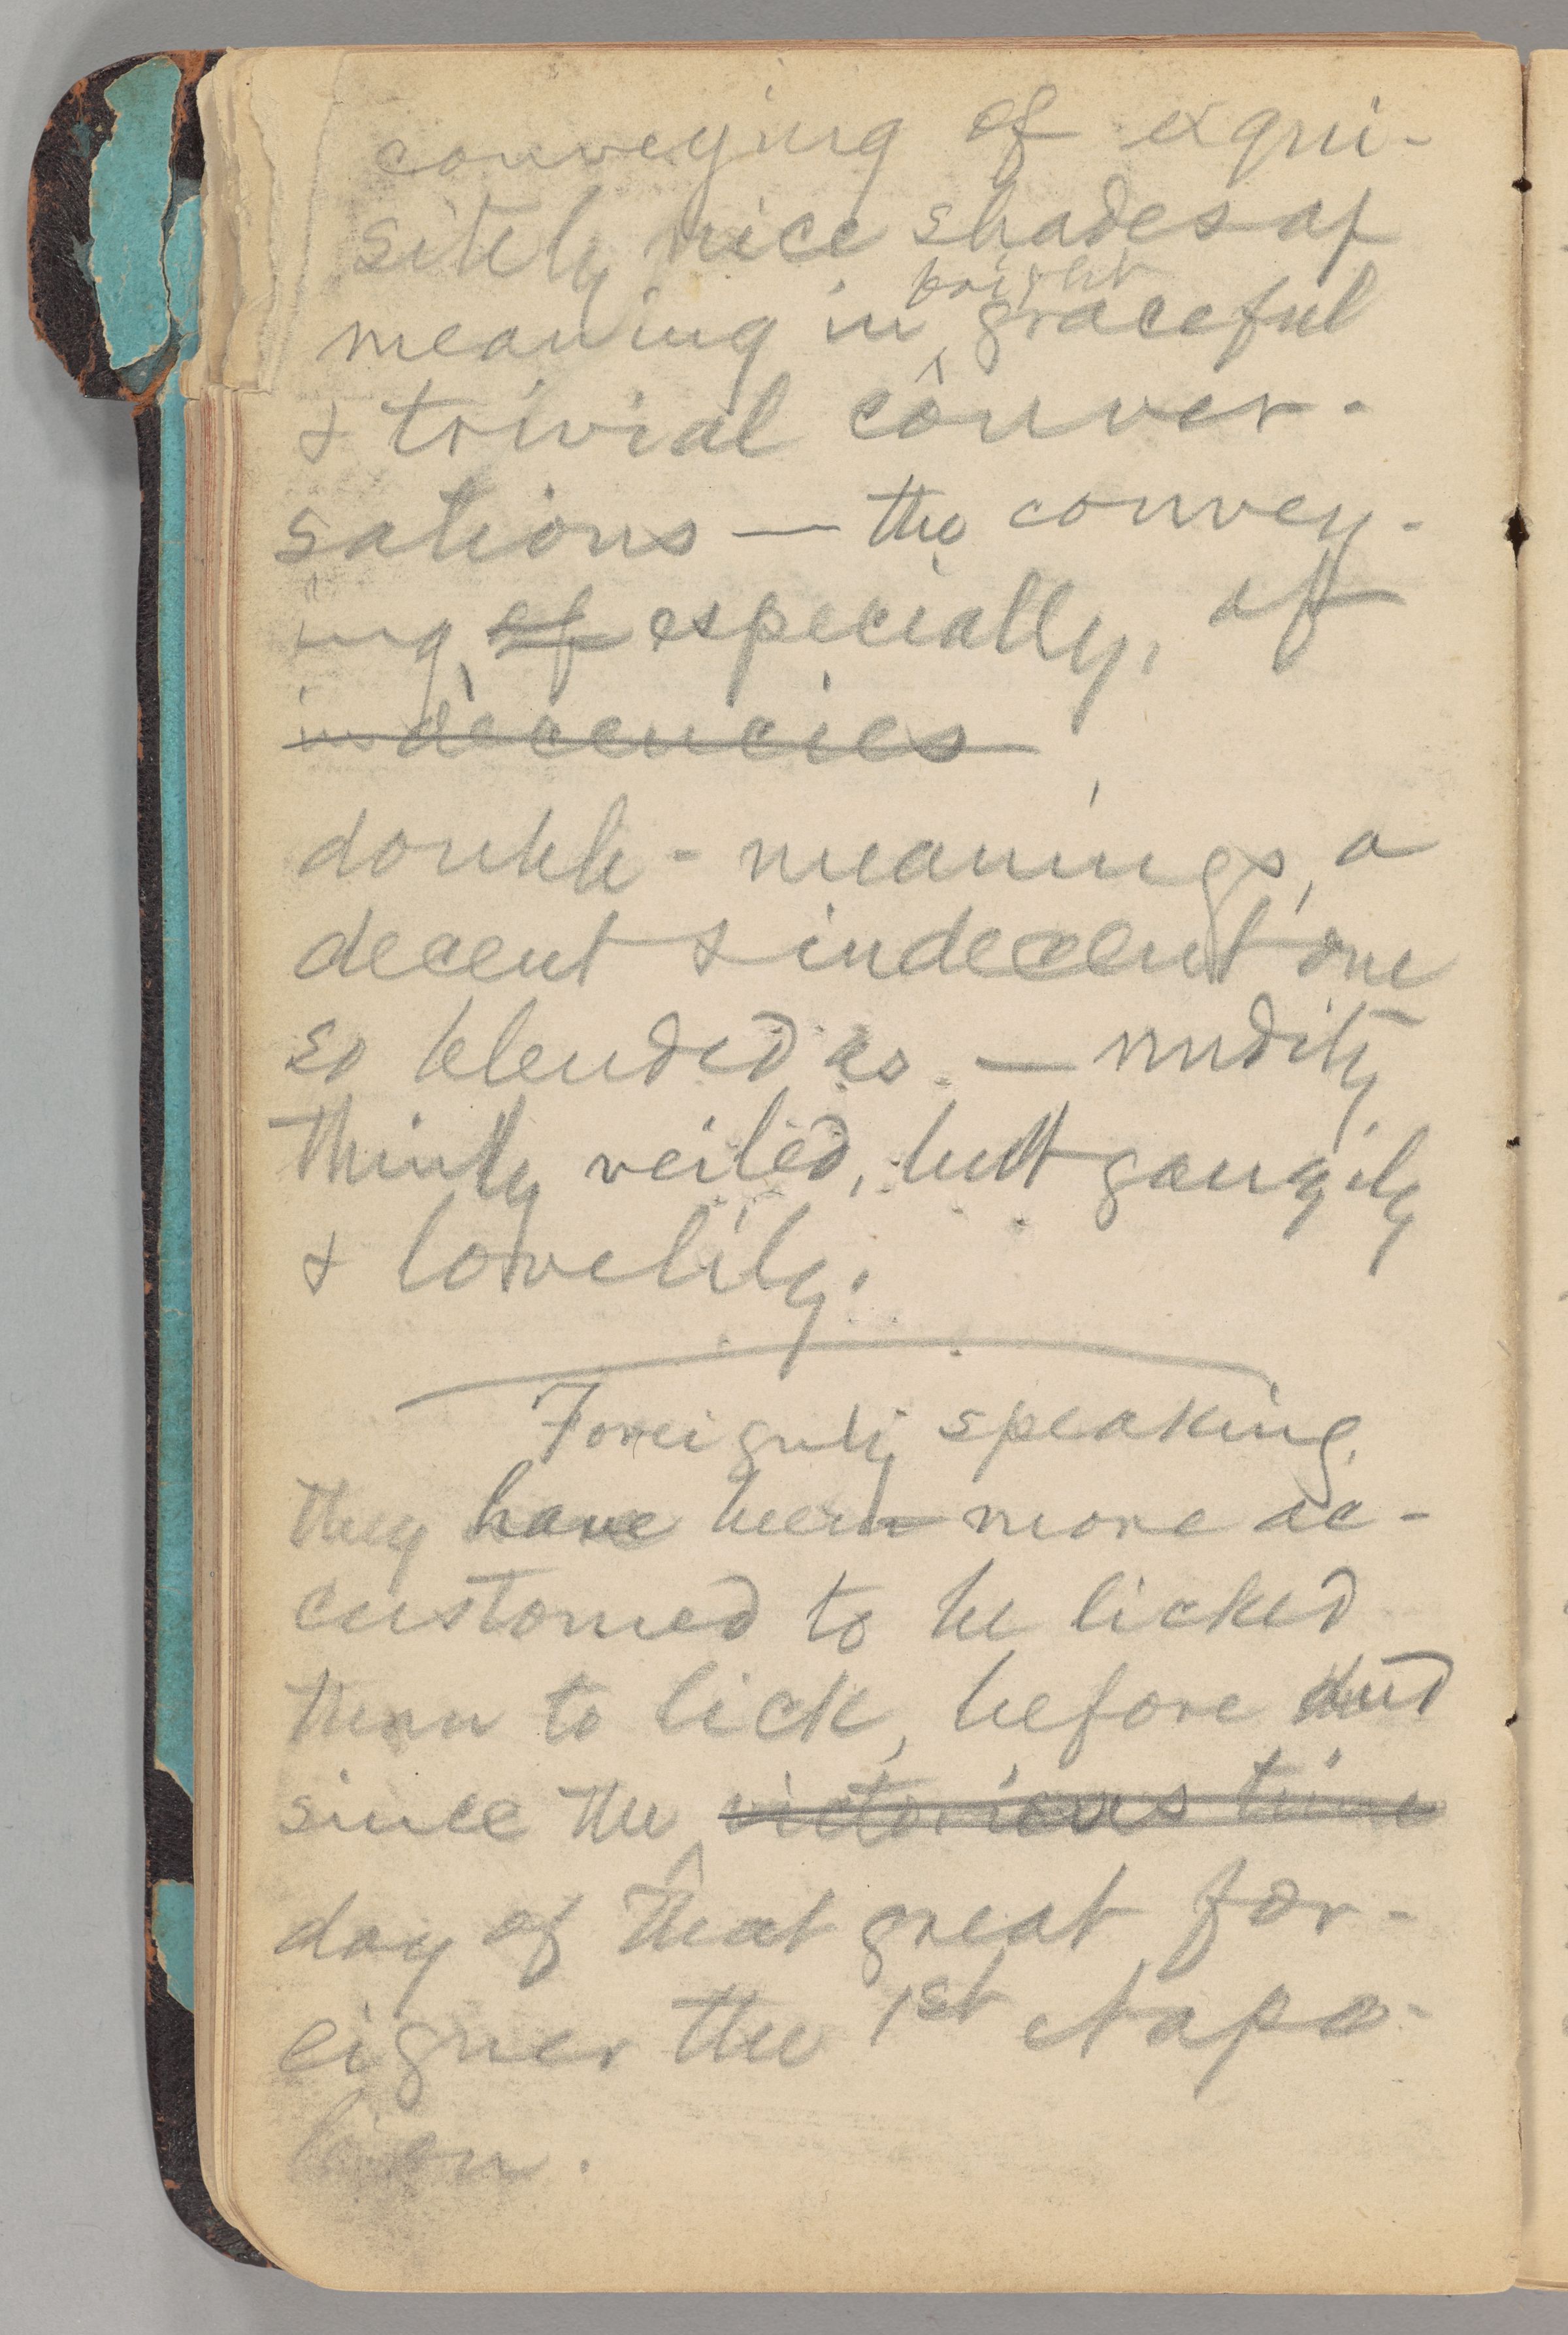 conveying of exqui-
sitely nice shades of
bright
meaning in ‸ graceful
& trivial conver-
sations — the convey-
ing, of especially, of
indecencies
double-meanings, a
decent & indecent one
so blended as — nudity
thinly veiled, but gauzily
& lovelily.
Foreignly speaking,
they have been more ac-
customed to be licked
than to lick, before and
since the victorious time
day of that great for-
eigner the 1st Napo-
leon.